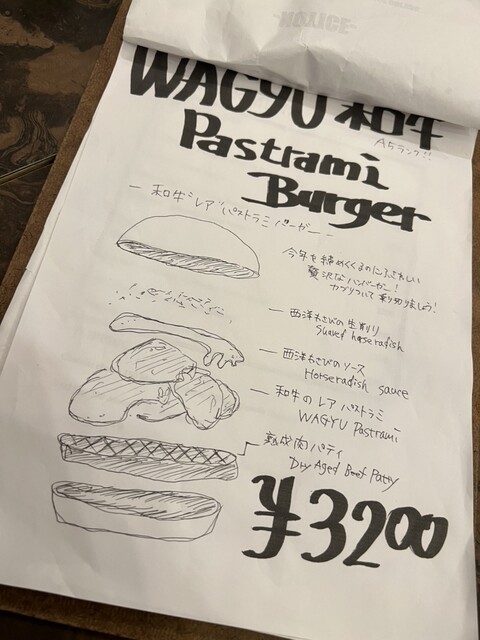 NOTICE
WAGYU 和牛
A5ランク!!
Pastrami
Burger
— 和牛レアパストラミバーガー —
今年を締めくくるのにふさわしい
贅沢なハンバーガー!
カブリついて乗り切りましょう!
— 西洋わさびの生削り
horseradish
— 西洋わさびのソース
Horseradish sauce
— 和牛のレアパストラミ
WAGYU Pastrami
熟成肉パティ
Dry Aged Beef Patty
¥3200